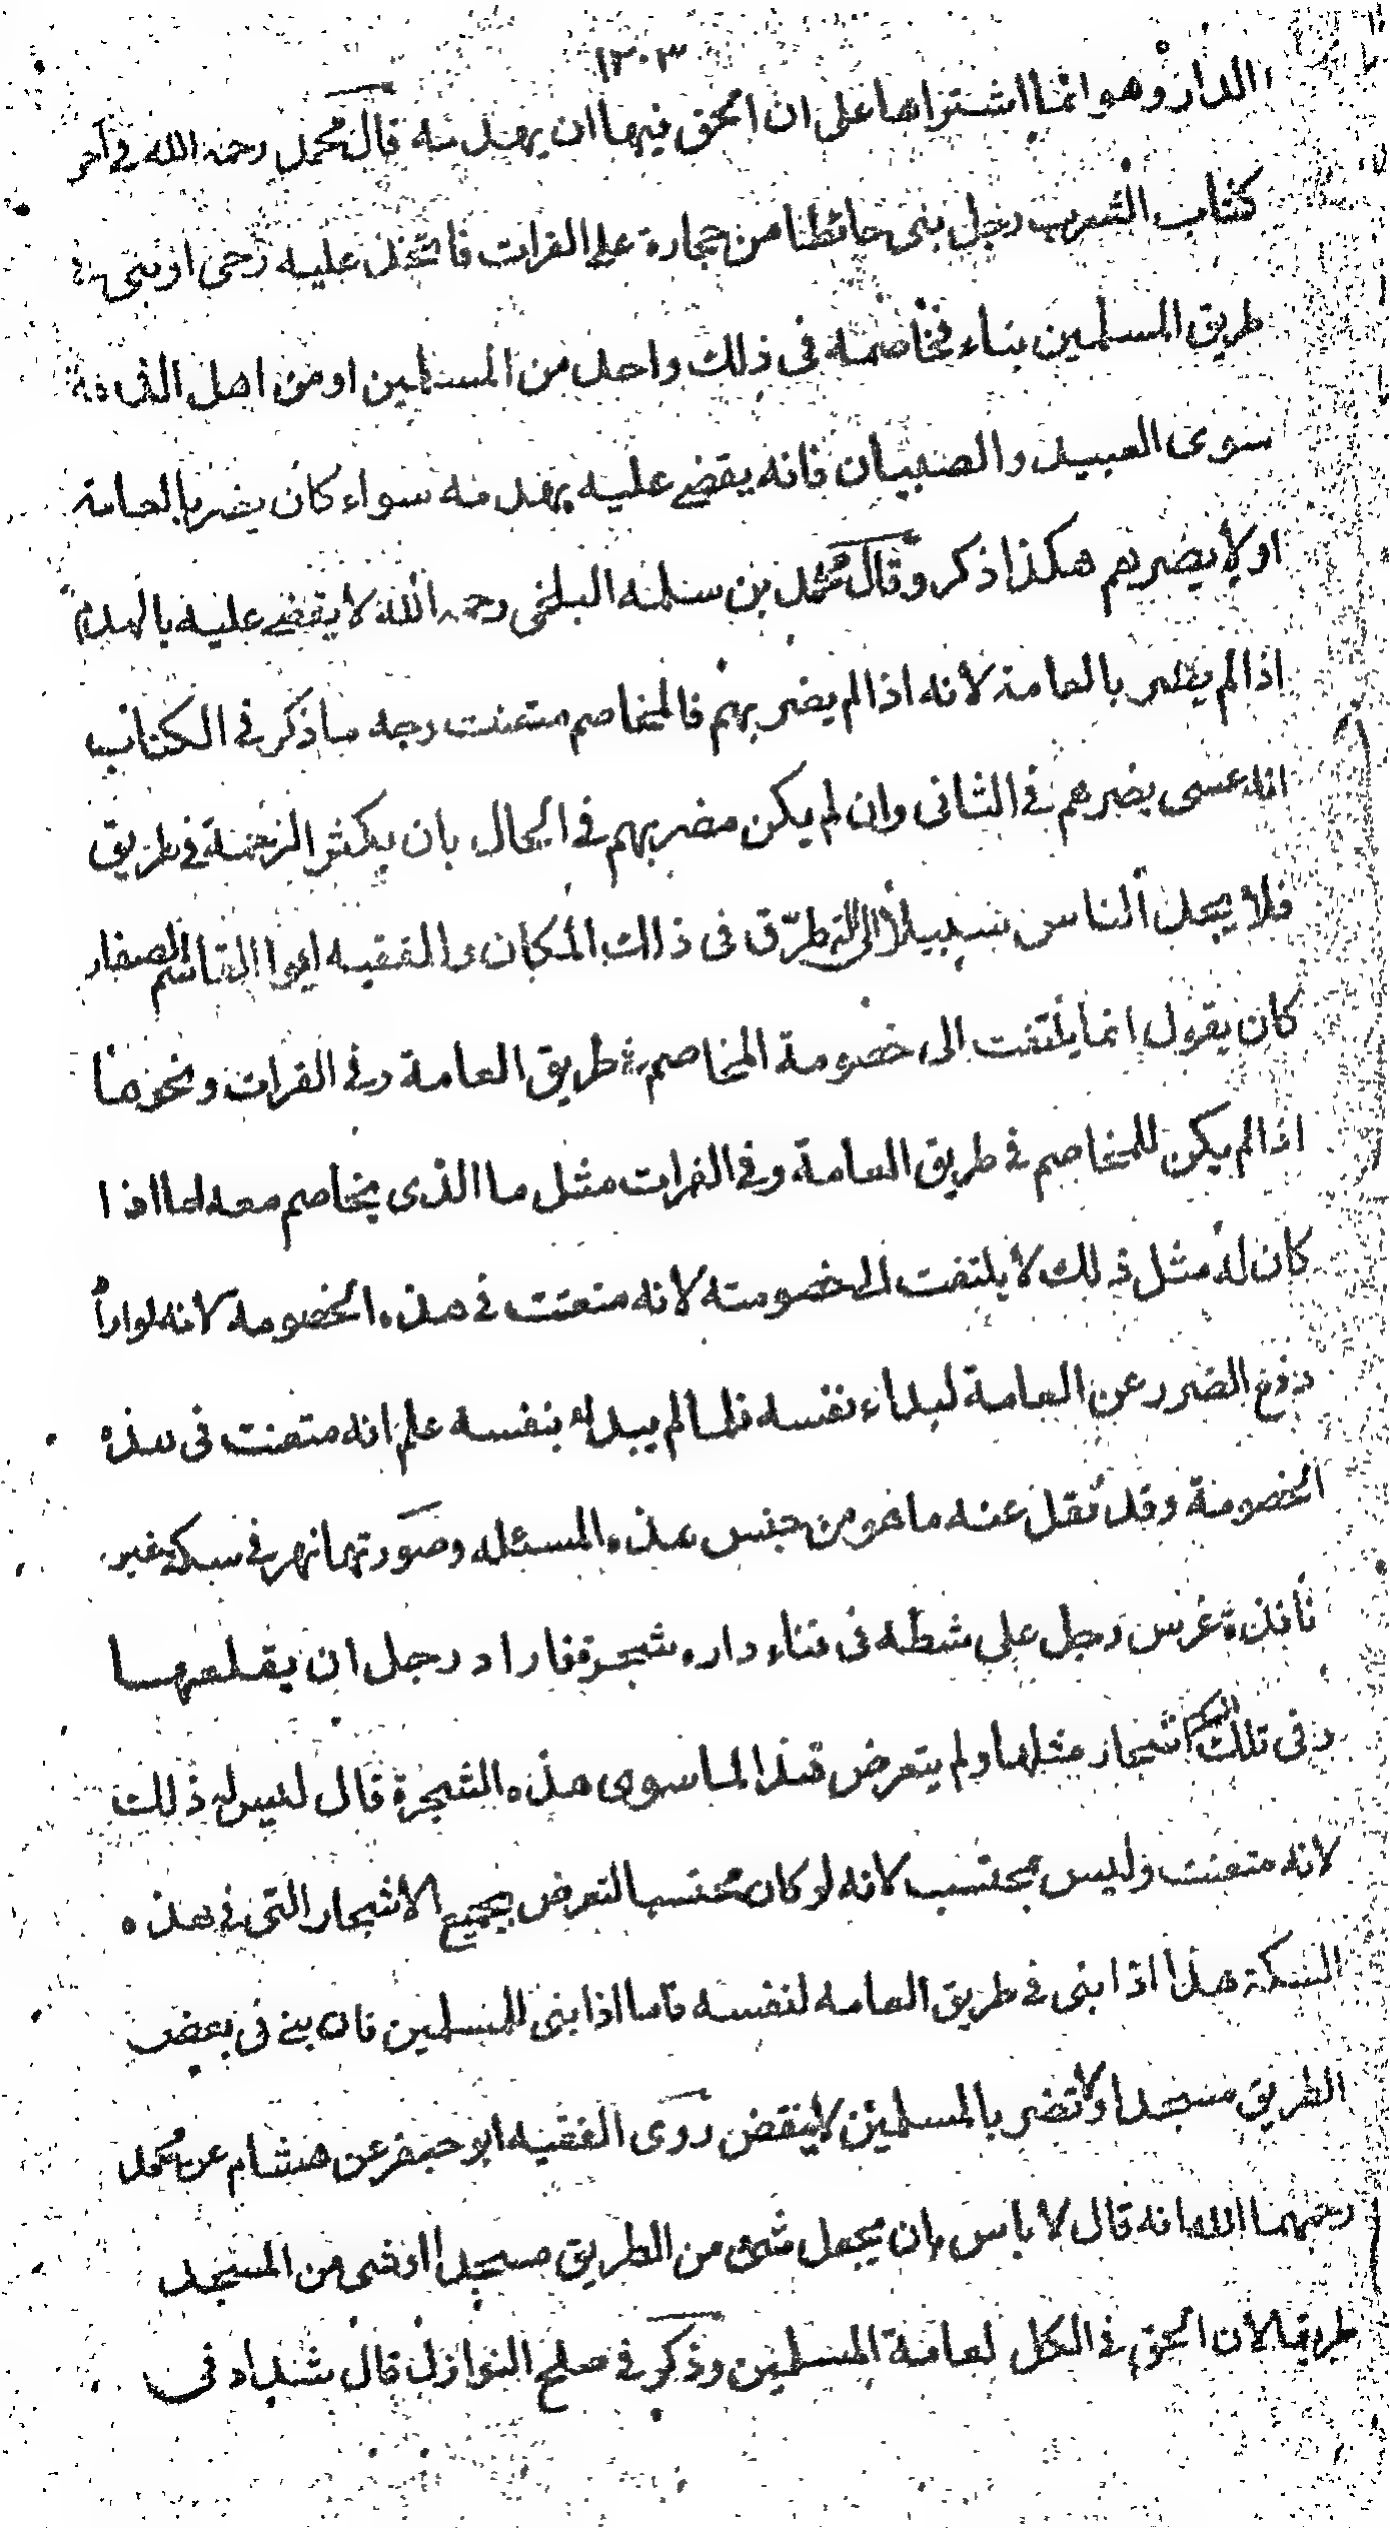 ١٣٠٣
الدار وهو انما اشتراها على ان الحق فيها ان يهدمه قال محمد رحمه الله في آخر
كتاب الشرب رجل بنى حائطا من حجارة على الفرات فاتخذ عليه رحى او بنى في
طريق المسلمين بناء فخاصمه في ذلك واحد من المسلمين او من اهل الذمة
سوى العبيد والصبيان فانه يقضى عليه بهدمه سواء كان يضر بالعامة
او لا يضرهم هكذا ذكر وقال محمد بن سلمة البلخي رحمه الله لا يقضى عليه بالهدم
اذا لم يضر بالعامة لانه اذا لم يضر بهم فالمخاصم متعنت وجه ما ذكر في الكتاب
انه عسى يضرهم في الثاني وان لم يكن مضر بهم في الحال بان يكثر الزحمة في طريق
فلا يجد الناس سبيلا الى التطرق في ذلك المكان والفقيه ابوا القاسم الصفار
كان يقول انما يلتفت الى خصومة المخاصم في طريق العامة وفي الفرات ونحوها
اذا لم يكن للمخاصم في طريق العامة وفي الفرات مثل ما الذى يخاصم معه اما اذا
كان له مثل ذلك لا يلتفت الى خصومته لانه متعنت في هذه الخصومة لانه لو اراد
دفع الضرر عن العامة لبداء نفسه فلما لم يبداء بنفسه علم انه متعنت في هذه
الخصومة وقد نقل عنه ما هو من جنس هذه المسئله وصورتها نهر في سكة غير
نافذة غرس رجل على شطه في فناء داره شجرة فاراد رجل ان يقلعها
وفي تلك السكة اشجار مثلها ولم يتعرض هذا لما سوى هذه الشجرة قال ليس له ذلك
لانه متعنت وليس بمحتسب لانه لو كان محتسبا لتعرض بجميع الاشجار التى في هذه
السكة هذا اذا بنى في طريق العامه لنفسه فاما اذا بنى للمسلمين فان بنى في بعض
الطريق مسجدا ولا تضر بالمسلمين لا ينقض روى الفقيه ابو جعفر عن هشام عن محمد
رحمهما الله انه قال لا باس بان يجعل شئ من الطريق مسجدا او شى من المسجد
طريقا لان الحق في الكل لعامة المسلمين وذكر في صلح النوازل قال شداد في